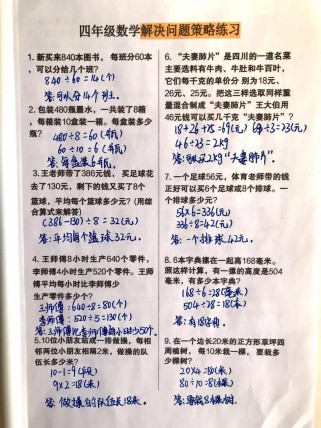 四年级数学解决问题策略练习
1. 新买来840本图书， 每班分60本
，可以分给几个班?
840÷60=14(个)
答:可以分14个班.
2. 包装480瓶墨水，一共装了8箱
，每箱装10盒装一箱。每盒装多少
瓶?
480÷8=60(瓶)
60÷10=6(瓶)
答:每盒装6瓶.
3. 王老师带了386元钱， 买足球花
去了130元，剩下的钱又买了8个
篮球，平均每个篮球多少元?(用综
合算式来解答)
(386-130)÷8=32(元)
答:平均每个篮球32元.
4. 王师傅8小时生产640个零件，
李师傅4小时生产520个零件。王师
傅平均每小时比李师傅少
生产零件多少个?
王师傅:640÷8=80(个)
李师傅:520÷4=130(个)
答:王师傅比李师傅每小时少50个.
5.10位小朋友站成一排做操，每相
邻两位小朋友相隔2米，做操的队
伍长多少米?
10-1=9
9×2=18(米)
答:做操的队伍长18米.
6. “夫妻肺片”是四川的一道名菜
主要选料有牛肉、牛肚和牛百叶，
它们每千克的单价分 别为18元、
26元、25元。把这三样选取同样重
量混合制成“夫妻肺片”王大伯用
46元钱可以买几千克“夫妻肺片”?
18+26+25=69(元) 69÷3=23(元)
46÷23=2kg
答:可以买2kg“夫妻肺片”.
7. 一个足球56元，体育老师带的钱
正好可以买6个足球或8个排球。一
个排球多少元?
56×6=336(元)
336÷8=42(元)
答:一个排球42元.
8. 6本字典摞在一起高168毫米。
照这样计算，有一摞的高度是504
毫米，有多少本字典?
168÷6=28(毫米)
504÷28=18(本)
答:有18本.
9. 在一个边长20米的正方形草坪四
周植树， 每10米栽一棵， 要栽多
少棵树?
20×4=80(米)
80÷10=8(棵)
答:要栽8棵树.